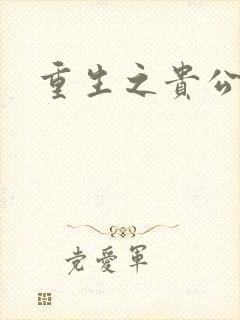 重生之貴公
党愛軍